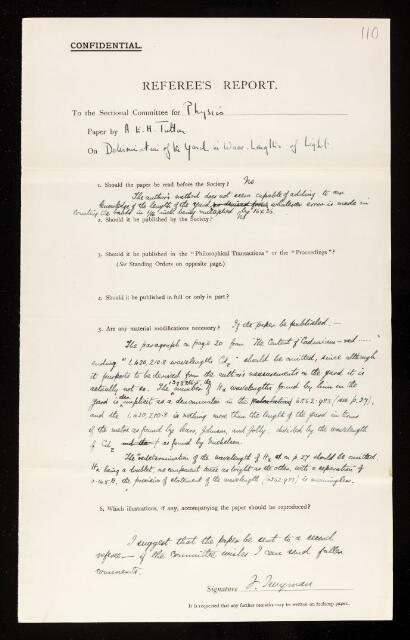 110
CONFIDENTIAL.
REFEREE'S REPORT.
To the Sectional Committee for Physics
Paper by A E. H. Tutton
On Determination of the Yard in Wave-Lengths of Light.
1. Should the paper be read before the Society? No
The author's method does not seem capable of adding to our
knowledge of the length of the yard, whatever error is made in
counting the bands in 1/16 inch being multiplied by 16 x 36.
2. Should it be published by the Society? No
3. Should it be published in the "Philosophical Transactions" or the "Proceedings"?
(See Standing Orders on opposite page.)
4. Should it be published in full or only in part?
5. Are any material modifications necessary? If the paper be published:—
The paragraph on page 20 from "The Content of Cadmium-red ....."
ending "1,420,210.8 wavelengths Cd" should be omitted, since although
it purports to be derived from the author's measurements on the yard it is
actually not so. The number of H wavelengths found by him in the
yard is implicit as a denominator in the 6562.783 (see p. 27),
and the 1,420,210.8 is nothing more than the length of the yard in terms
of the metre as found by Sears, Johnson, and Jolly, divided by the wavelength
of Cd as found by Michelson.
The redetermination of the wavelength of H on p 27 should be omitted
H being a doublet, one component twice as bright as the other, with a separation of
0.145 Å, the precision of statement of the wavelength (6562.783) is meaningless.
6. Which illustrations, if any, accompanying the paper should be reproduced?
I suggest that the paper be sent to a second
referee — if the committee wishes I can send fuller
comments.
Signature F. Twyman
It is requested that any further remarks may be written on foolscap paper.